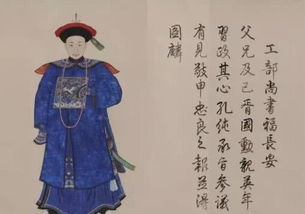 工部尚書福長安
父兄及己胥國勳親英年
習政其心孔純承旨參議
有見敬申忠良之報並淂
圖麟